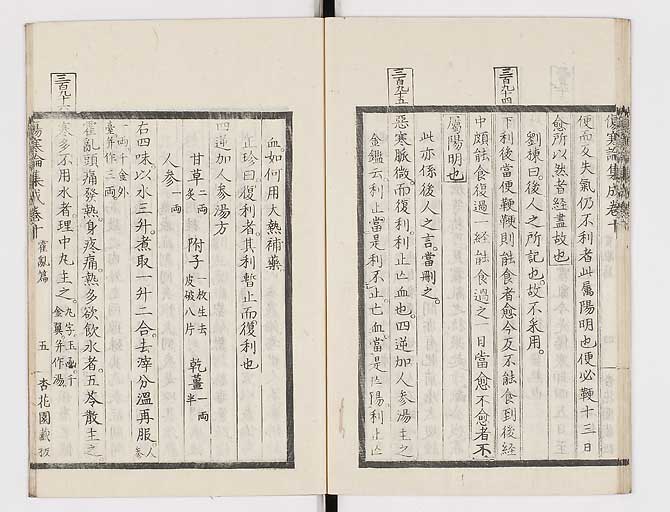 傷寒論集成卷十
便而反失氣仍不利者此屬陽明也便必鞕十三日
愈所以然者經盡故也
劉棟曰後人之所記也故不采用
三百九十四
下利後當便鞕鞕則能食者愈今反不能食到後經
中頗能食復過一經能食過之一日當愈不愈者不
屬陽明也
此亦係後人之言當刪之
三百九十五
惡寒脈微而復利利止亡血也四逆加人參湯主之
金鑑云利止當是利不止亡血當是亡陽利止亡
血如何用大熱補藥
正珍曰復利者其利暫止而復利也
四逆加人參湯方
甘草二兩炙 附子一枚生去皮破八片 乾薑一兩半
人參一兩
右四味以水三升煮取一升二合去滓分溫再服
三百九十六
霍亂頭痛發熱身疼痛熱多欲飲水者五苓散主之
寒多不用水者理中丸主之
傷寒論集成卷十 霍亂篇 五 杏花園藏板